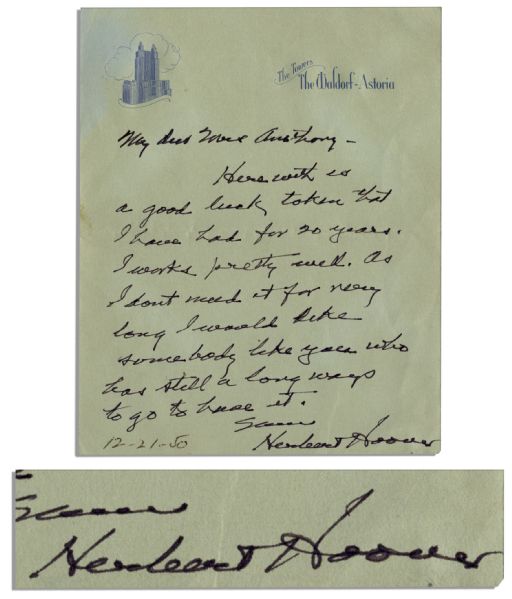 The Towers
The Waldorf-Astoria
My dear Anthony –
Herewith is
a good luck token that
I have had for 20 years.
I works pretty well. As
I dont need it for very
long I would like
somebody like you who
has still a long ways
to go to have it.
Herbert Hoover
12-21-50
Herbert Hoover